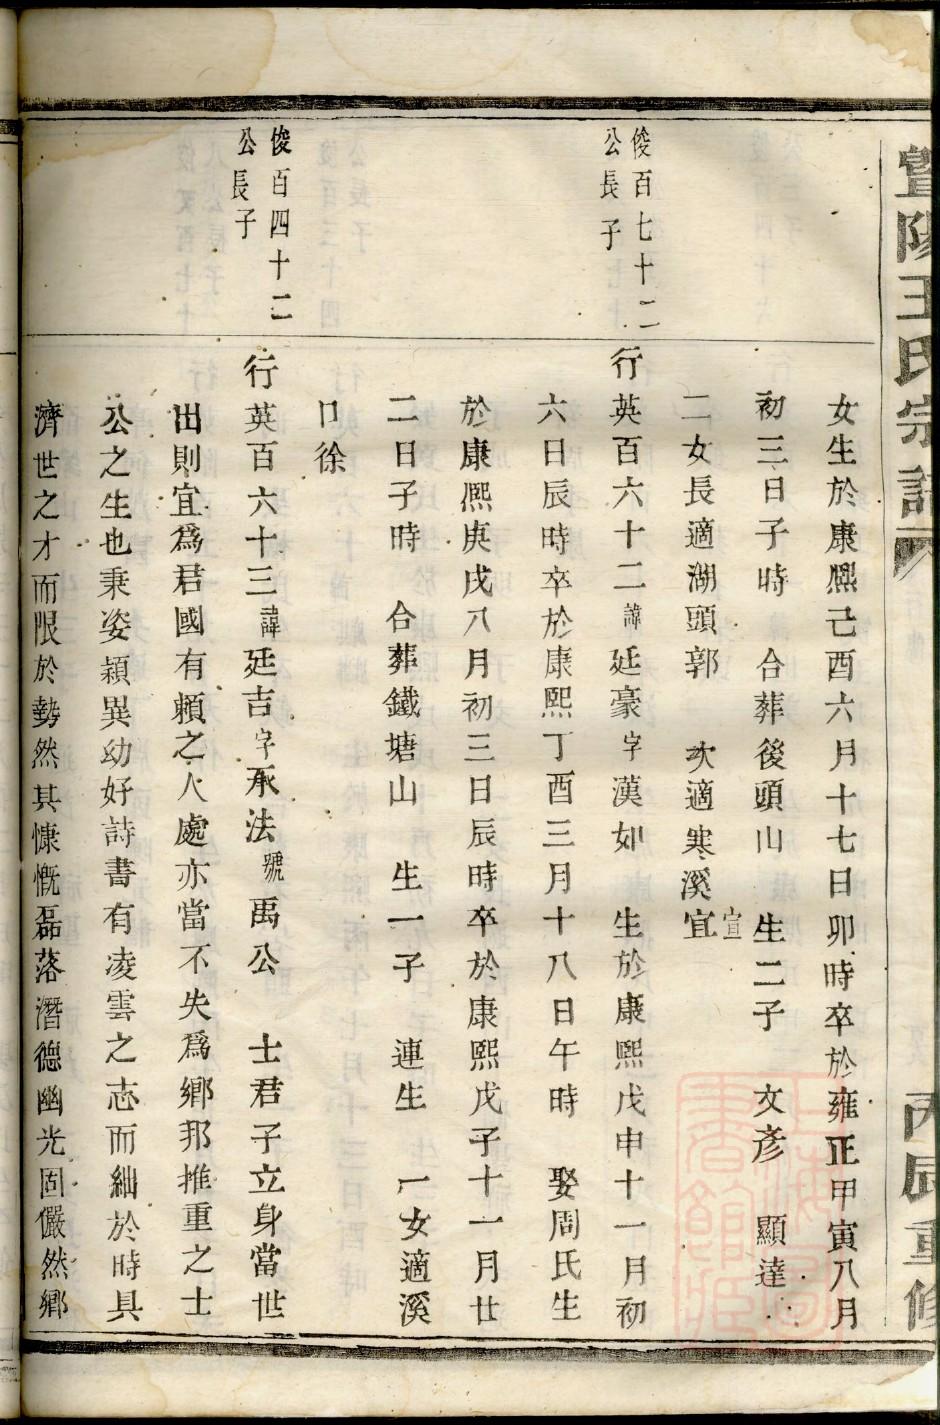 暨陽王氏宗譜
丙辰重修
女生於康熙己酉六月十七日卯時卒於雍正甲寅八月
初三日子時 合葬後頭山 生二子 文彥 顯達
二女長適湖頭郭 次適寒溪宜
宣
俊百七十二
公長子
行英百六十二諱廷豪字漢如 生於康熙戊申十一月初
六日辰時卒於康熙丁酉三月十八日午時 娶周氏生
於康熙庚戌八月初三日辰時卒於康熙戊子十一月廿
二日子時 合葬鐵塘山 生一子 連生 一女適溪
口徐
俊百四十二
公長子
行英百六十三諱廷吉字承法號禹公 士君子立身當世
出則宜爲君國有賴之人處亦當不失爲鄉邦推重之士
公之生也秉姿穎異幼好詩書有凌雲之志而絀於時具
濟世之才而限於勢然其慷慨磊落潛德幽光固儼然鄉